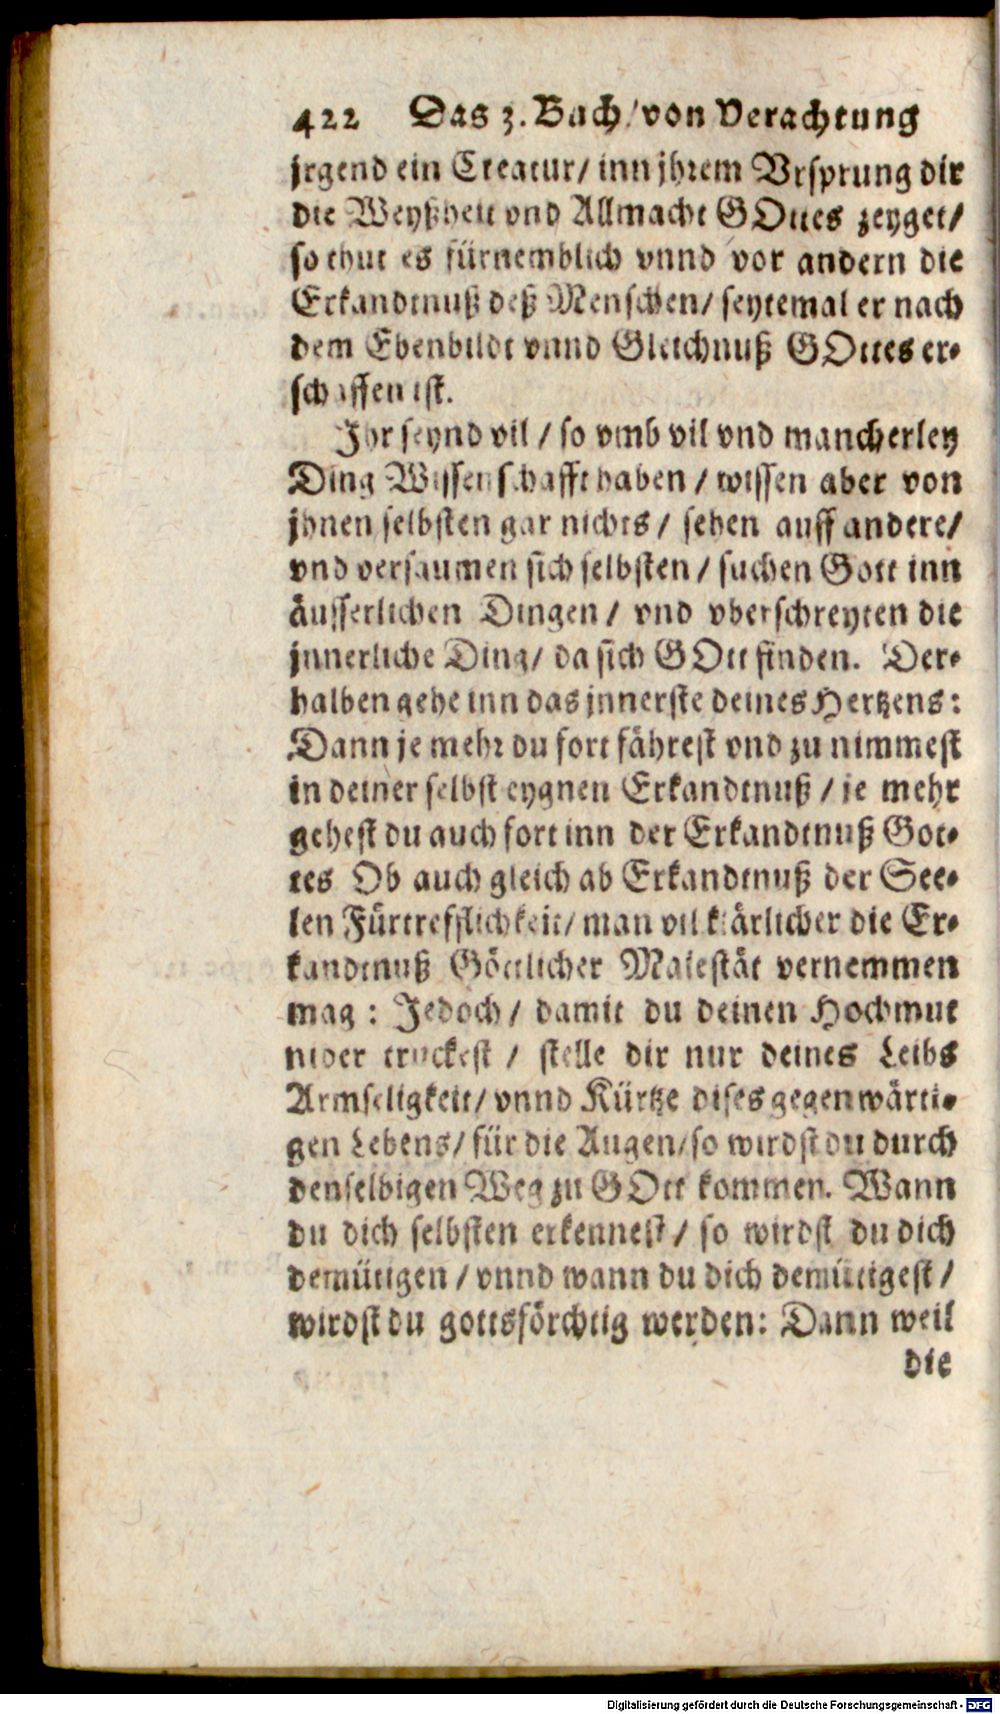 422 Das 3. Buch / von Verachtung
jrgend ein Creatur / inn jhrem Vrsprung dir
die Weyßheit vnd Allmacht GOttes zeyget /
so thut es fürnemblich vnnd vor andern die
Erkandtnuß deß Menschen / seytemal er nach
dem Ebenbildt vnnd Gleichnuß GOttes er-
schaffen ist.
Ihr seynd vil / so vmb vil vnd mancherley
Ding Wissenschafft haben / wissen aber von
jhnen selbsten gar nichts / sehen auff andere /
vnd versaumen sich selbsten / suchen Gott inn
äusserlichen Dingen / vnd vberschreyten die
jnnerliche Ding / da sich GOtt finden. Der-
halben gehe inn das jnnerste deines Hertzens:
Dann je mehr du fort fährest vnd zu nimmest
in deiner selbst eygnen Erkandtnuß / je mehr
gehest du auch fort inn der Erkandtnuß Got-
tes Ob auch gleich ab Erkandtnuß der See-
len Fürtrefflichkeit / man vil klärlicher die Er-
kandtnuß Göttlicher Maiestät vernemmen
mag : Jedoch / damit du deinen Hochmut
nider truckest / stelle dir nur deines Leibs
Armseligkeit / vnnd Kürtze dises gegenwärti-
gen Lebens / für die Augen / so wirdst du durch
denselbigen Weg zu GOtt kommen. Wann
du dich selbsten erkennest / so wirdst du dich
demütigen / vnnd wann du dich demütigest /
wirdst du gottsförchtig werden: Dann weil
die
Digitalisierung gefördert durch die Deutsche Forschungsgemeinschaft - DFG